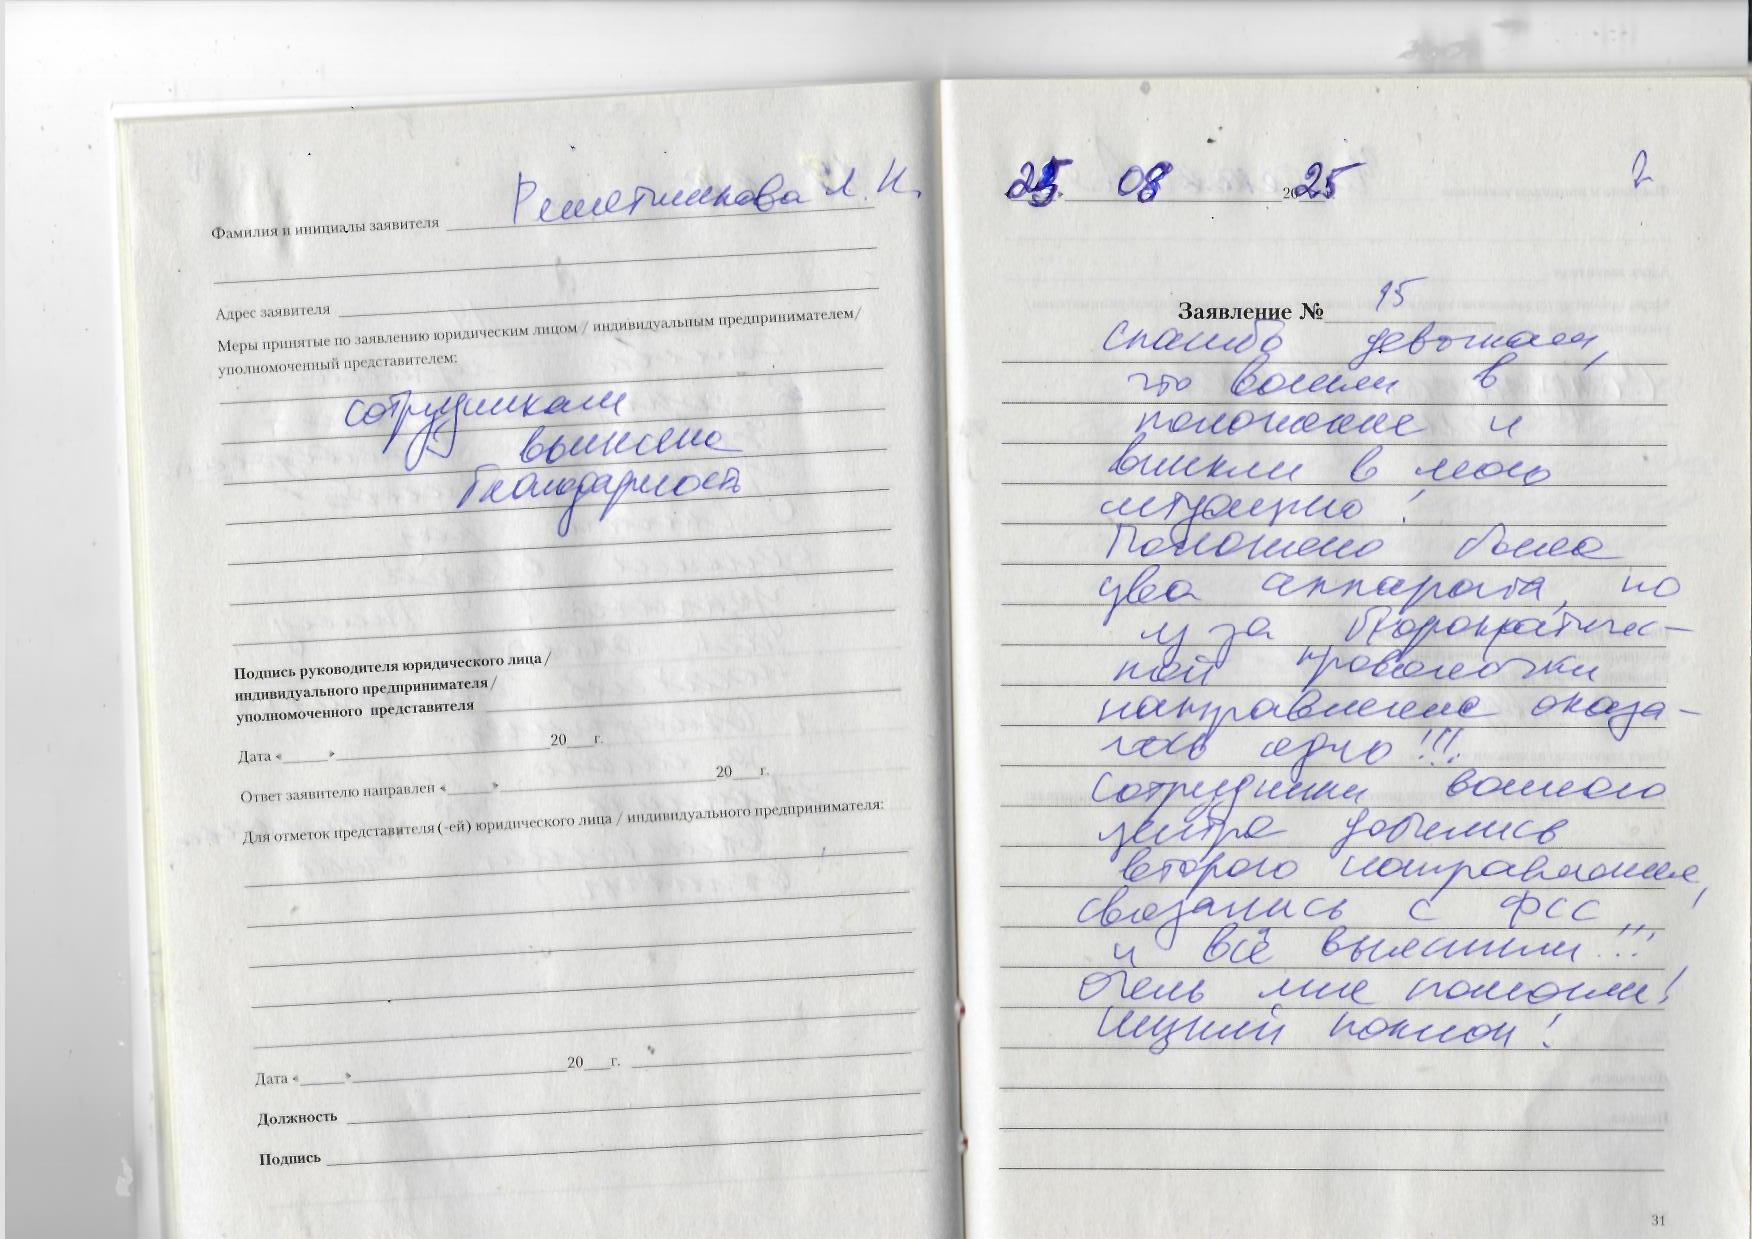 Решетникова Л. Н.
Фамилия и инициалы заявителя
Адрес заявителя
Меры принятые по заявлению юридическим лицом / индивидуальным предпринимателем/
уполномоченный представителем:
сотрудникам
вынесена
благодарность
Подпись руководителя юридического лица /
индивидуального предпринимателя /
уполномоченного представителя
Дата «____»____20___г.
Ответ заявителю направлен «____»____20___г.
Для отметок представителя (-ей) юридического лица / индивидуального предпринимателя:
Дата «____»____20___г.
Должность
Подпись
25 08 2025 г
Заявление № 15
Спасибо девочкам,
что вошли в
положение и
вникли в мою
ситуацию!
Положено было
два аппарата, но
из за бюрократичес-
кой проволочки
направление оказа-
лось одно!!!
Сотрудники вашего
центра добились
второго направления,
связались с ФСС
и всё выяснили...!!!
Очень мне помогли!
Низкий поклон!
31